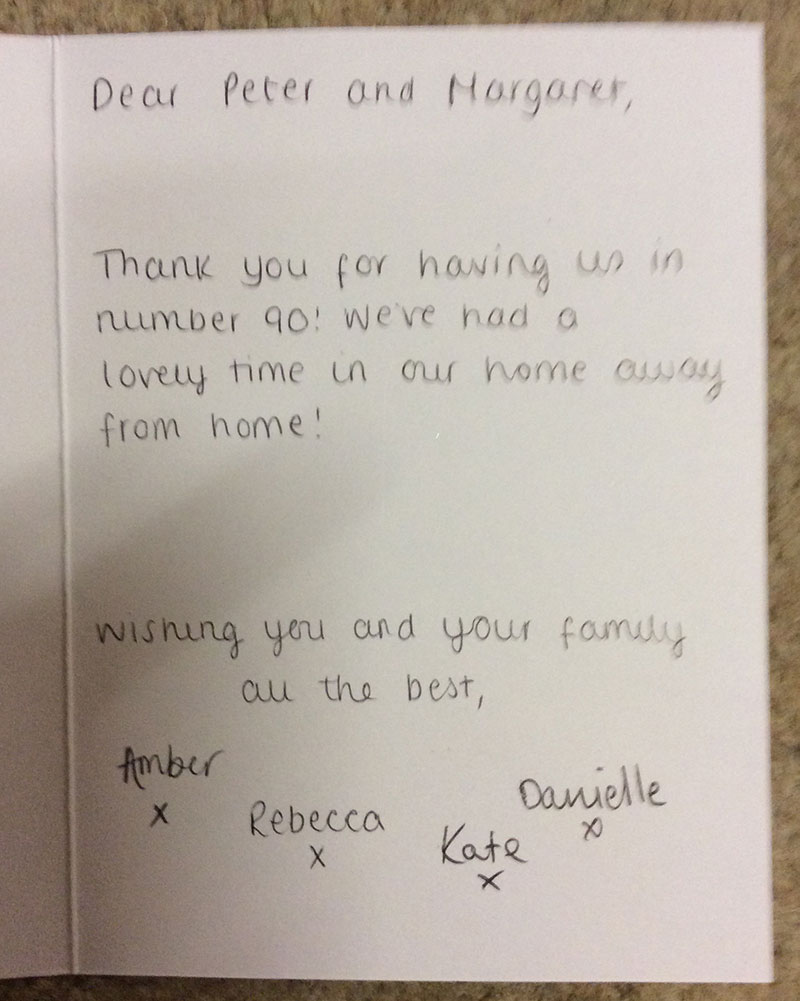 Dear Peter and Margaret,
Thank you for having us in
number 90! We've had a
lovely time in our home away
from home!
Wishing you and your family
all the best,
Amber
x
Rebecca
x
Kate
x
Danielle
x